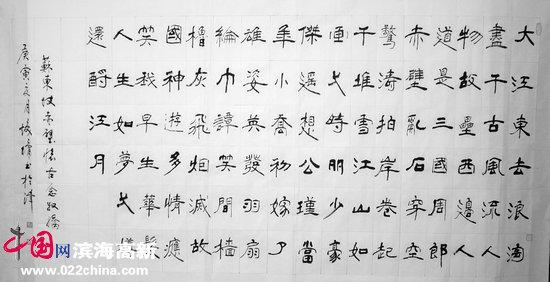 大江東去浪淘
盡千古風流人
物故壘西邊人
道是三國周郎
赤壁亂石穿空
驚濤拍岸卷起
千堆雪江山如
画弌時多少豪
傑遥想公瑾當
年小喬初嫁了
雄姿英發羽扇
綸巾談笑間檣
櫓灰飛烟滅故
國神遊多情應
笑我早生華髮
人生如夢弌
還酹江月
蘇東坡赤壁懷古念奴嬌
庚寅月書於津
中国网 滨海高新
www.022china.com